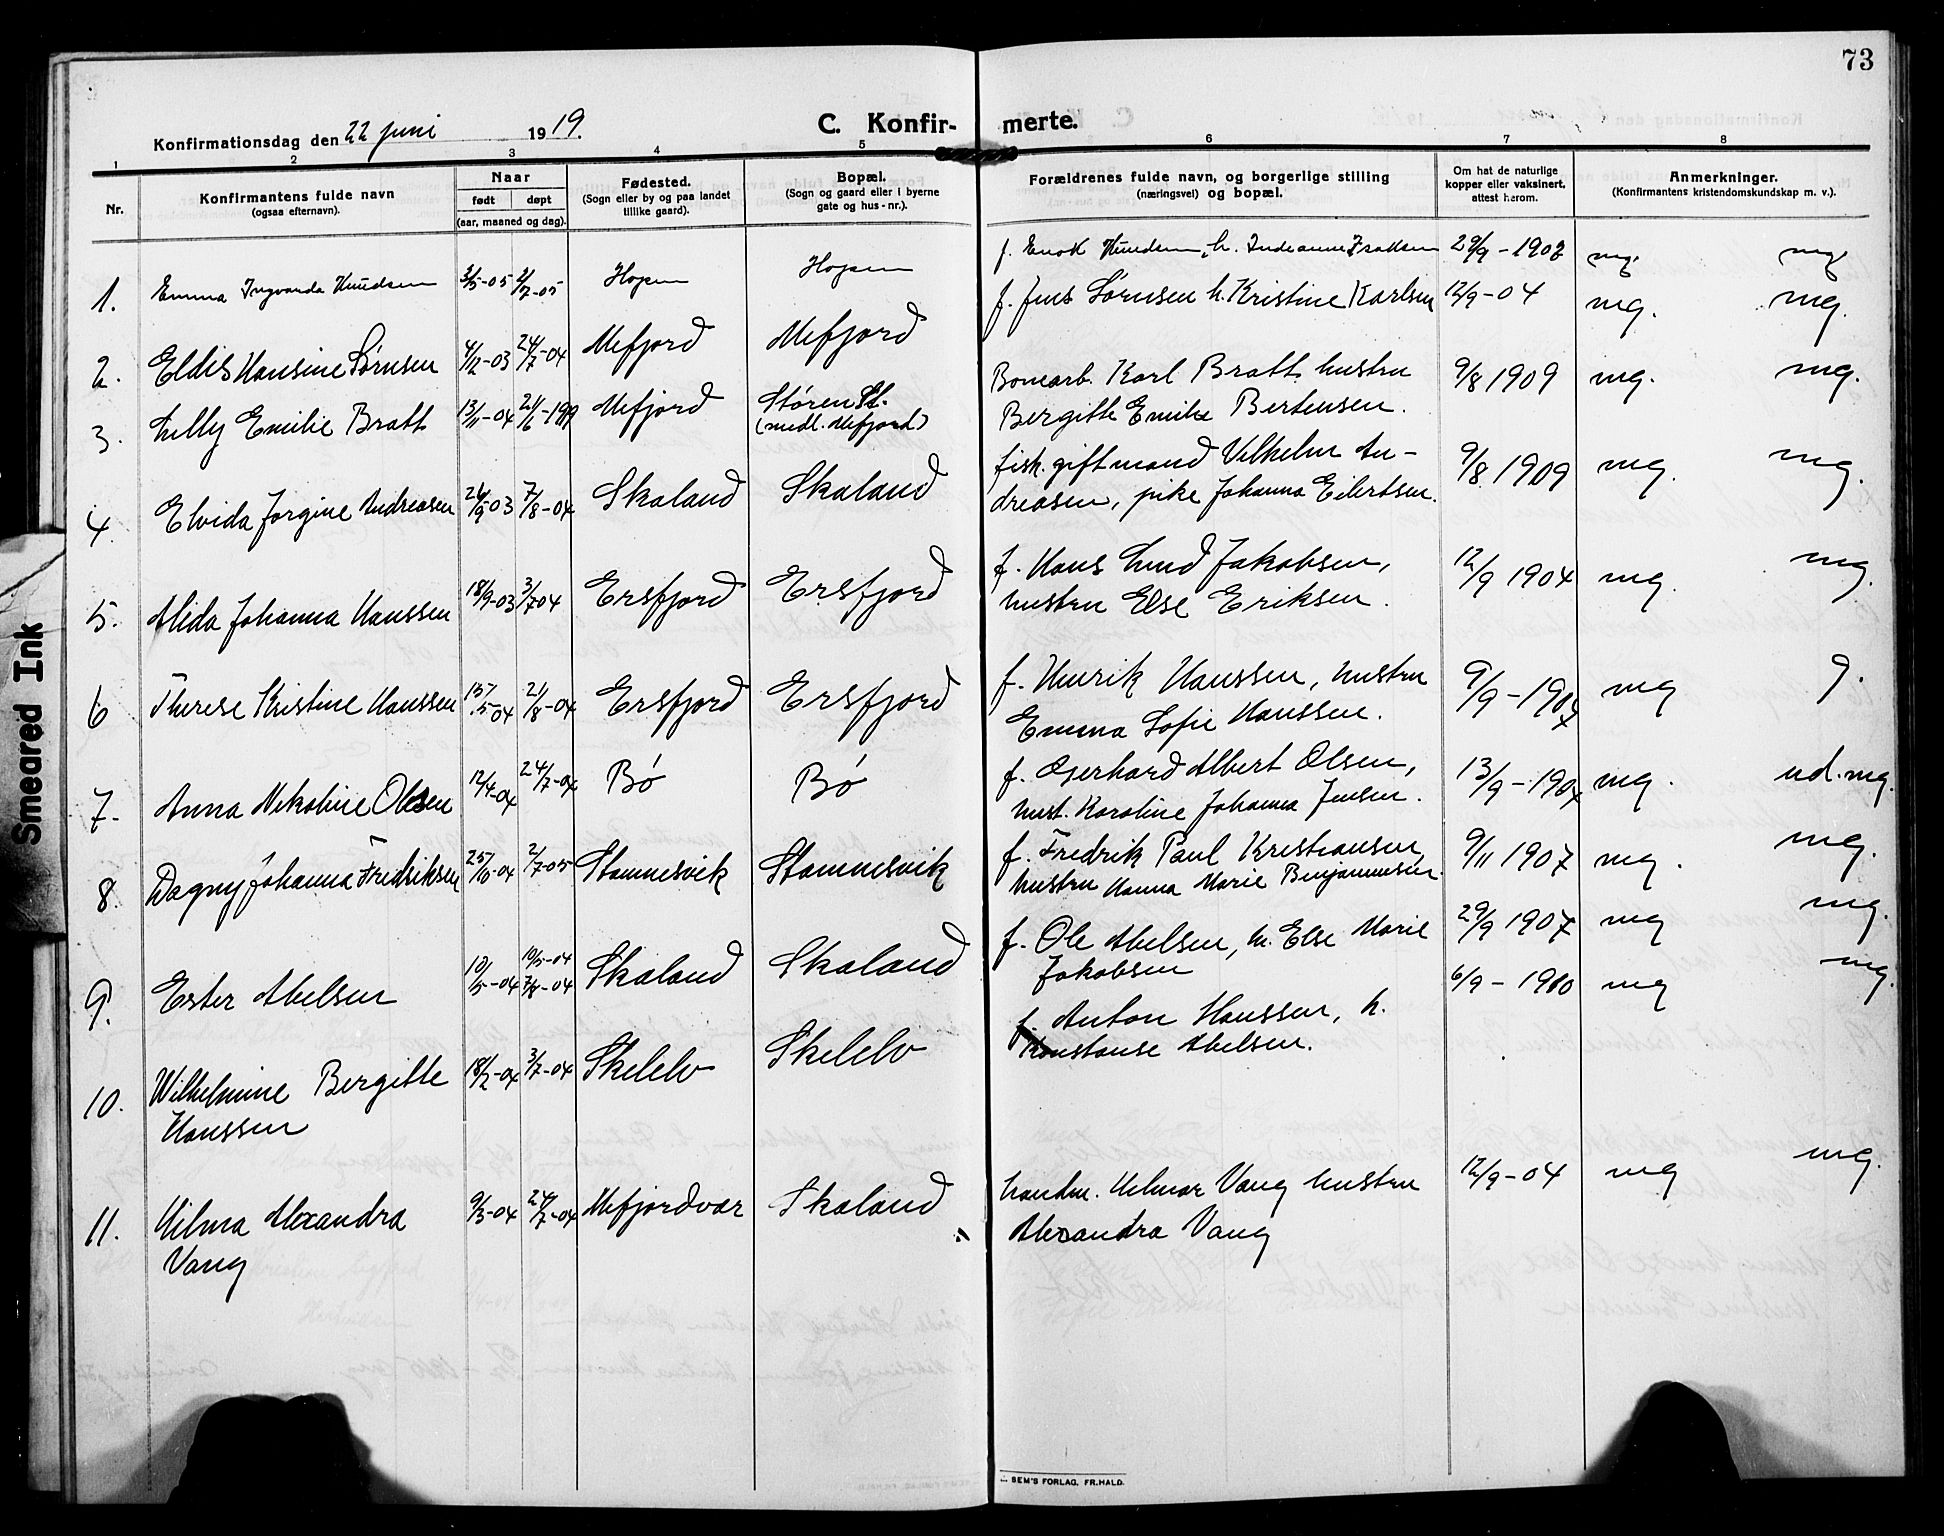 73
Konfirmationsdag den 22 juni 1919.
C. Konfir- merte.
1 2 3 4 5 6 7 8
Nr.
Konfirmantens fulde navn
(ogsaa efternavn).
Naar
født døpt
(aar, maaned og dag).
Fødested.
(Sogn eller by og paa landet
tillike gaard).
Bopæl.
(Sogn og gaard eller i byerne
gate og hus-nr.).
Forældrenes fulde navn, og borgerlige stilling
(næringsvei) og bopæl.
Om hat de naturlige
kopper eller vaksinert,
attest herom.
Anmerkninger.
(Konfirmantens kristendomskundskap m. v.).
1. Emma Ingvarda Knudsen 3/5-05 2/7-05 Hopen Hopen f. Enok Knudsen, h. Indeanna Isaksen 29/9-1908 mg. mg.
2. Eldis Hansine Sørnsen 4/12-03 24/7-04 Mefjord Mefjord f. Jens Sørnsen h. Kristine Karlsen 12/9-04 mg. mg.
3. Lilly Emilie Bratt 13/11-04 21/6-1919 Mefjord Støren St.
(medl. Mefjord)
Banearb. Karl Bratt hustru
Bergitte Emilie Bertensen. 9/8 1909 mg. mg.
4. Elvida Jorgine Andreasen 26/9-03 7/8-04 Skaland Skaland fisk. gift mand Vilhelm An-
dreasen, pike Johanna Eilertsen. 9/8 1909 mg. mg.
5. Alida Johanna Hanssen 18/9-03 3/7 04 Ersfjord Ersfjord f. Hans Lind Jakobsen,
hustru Else Eriksen. 12/9 1904 mg. mg.
6 Therese Kristine Hanssen 15/5-04 21/8-04 Ersfjord Ersfjord f. Henrik Hanssen, hustru
Emma Sofie Hanssen. 9/9-1907 mg g.
7. Anna Nikoline Olsen 12/4-04 24/7-04 Bø Bø f. Gjerhard Albert Olsen,
hust. Karoline Johanna Jensen. 13/9-1904 mg. ud. mg.
8. Dagny Johanna Fredriksen 25/10-04 2/7-05 Stomnesvik Stomnesvik f. Fredrik Paul Kristiansen
hustru Hanna Marie Benjaminsen. 9/11 1907 mg. mg.
9. Ester Abelsen 10/5-04 10/5-04
7/8-04 Skaland Skaland f. Ole Abelsen, h. Else Marie
Jakobsen 29/9 1907 mg mg.
10. Wilhelmine Bergitte
Hanssen 18/2-04 3/7-04 Skelelv Skelelv f. Anton Hanssen, h.
Konstanse Abelsen. 6/9-1910 mg mg.
11. Hilma Alexandra
Vang 9/3-04 24/7-04 Mefjordvær Skaland handm. Helmar Vang hustru
Alexandra Vang 12/9-04 mg mg.
SEM'S FORLAG, FR. HALD.
Smeared Ink